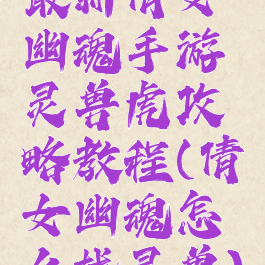 最新倩女
幽魂手游
灵兽虎攻
略教程(倩
女幽魂怎
么找灵兽)